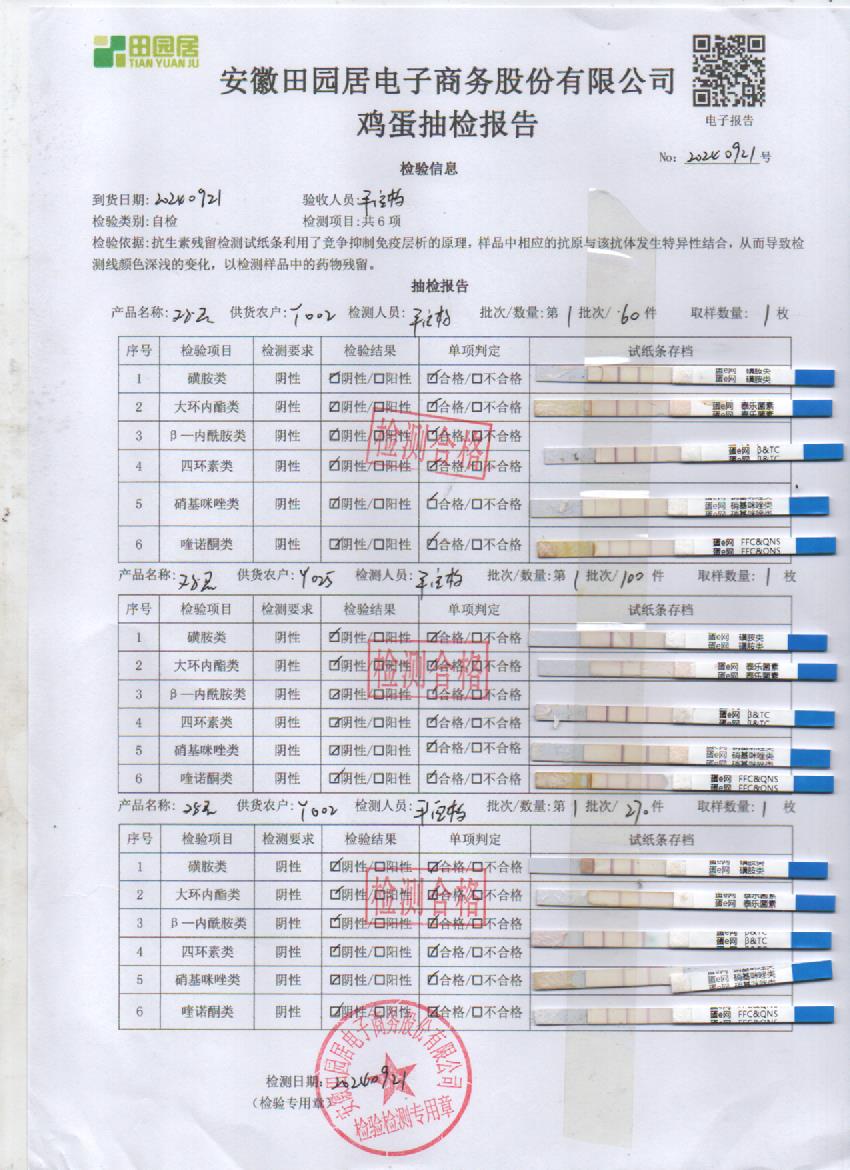 田园居
TIAN YUAN JU
安徽田园居电子商务股份有限公司
鸡蛋抽检报告
电子报告
No: 20240921号
检验信息
到货日期: 20240921 验收人员:
检验类别: 自检 检测项目: 共6项
检验依据: 抗生素残留检测试纸条利用了竞争抑制免疫层析的原理，样品中相应的抗原与该抗体发生特异性结合，从而导致检
测线颜色深浅的变化，以检测样品中的药物残留。
抽检报告
产品名称: 供货农户: Y002 检测人员: 批次/数量: 第1批次/60件 取样数量: 1枚
序号 检验项目 检测要求 检验结果 单项判定 试纸条存档
1 磺胺类 阴性 ☑阴性/☐阳性 ☑合格/☐不合格 蛋e网 磺胺类
2 大环内酯类 阴性 ☑阴性/☐阳性 ☑合格/☐不合格 蛋e网 泰乐菌素
3 β—内酰胺类 阴性 ☑阴性/☐阳性 ☑合格/☐不合格 蛋e网 β&TC
4 四环素类 阴性 ☑阴性/☐阳性 ☑合格/☐不合格
5 硝基咪唑类 阴性 ☑阴性/☐阳性 ☑合格/☐不合格 蛋e网 硝基咪唑类
6 喹诺酮类 阴性 ☑阴性/☐阳性 ☑合格/☐不合格 蛋e网 FFC&QNS
检测合格
产品名称: 供货农户: Y025 检测人员: 批次/数量: 第1批次/100件 取样数量: 1枚
序号 检验项目 检测要求 检验结果 单项判定 试纸条存档
1 磺胺类 阴性 ☑阴性/☐阳性 ☑合格/☐不合格 蛋e网 磺胺类
2 大环内酯类 阴性 ☑阴性/☐阳性 ☑合格/☐不合格 蛋e网 泰乐菌素
3 β—内酰胺类 阴性 ☑阴性/☐阳性 ☑合格/☐不合格
4 四环素类 阴性 ☑阴性/☐阳性 ☑合格/☐不合格 蛋e网 β&TC
5 硝基咪唑类 阴性 ☑阴性/☐阳性 ☑合格/☐不合格 蛋e网 硝基咪唑类
6 喹诺酮类 阴性 ☑阴性/☐阳性 ☑合格/☐不合格 蛋e网 FFC&QNS
检测合格
产品名称: 供货农户: Y002 检测人员: 批次/数量: 第1批次/270件 取样数量: 1枚
序号 检验项目 检测要求 检验结果 单项判定 试纸条存档
1 磺胺类 阴性 ☑阴性/☐阳性 ☑合格/☐不合格 蛋e网 磺胺类
2 大环内酯类 阴性 ☑阴性/☐阳性 ☑合格/☐不合格 蛋e网 泰乐菌素
3 β—内酰胺类 阴性 ☑阴性/☐阳性 ☑合格/☐不合格 蛋e网 β&TC
4 四环素类 阴性 ☑阴性/☐阳性 ☑合格/☐不合格
5 硝基咪唑类 阴性 ☑阴性/☐阳性 ☑合格/☐不合格 蛋e网 硝基咪唑类
6 喹诺酮类 阴性 ☑阴性/☐阳性 ☑合格/☐不合格 蛋e网 FFC&QNS
检测合格
检测日期: 20240921
（检验专用章）
安徽田园居电子商务股份有限公司
检验检测专用章